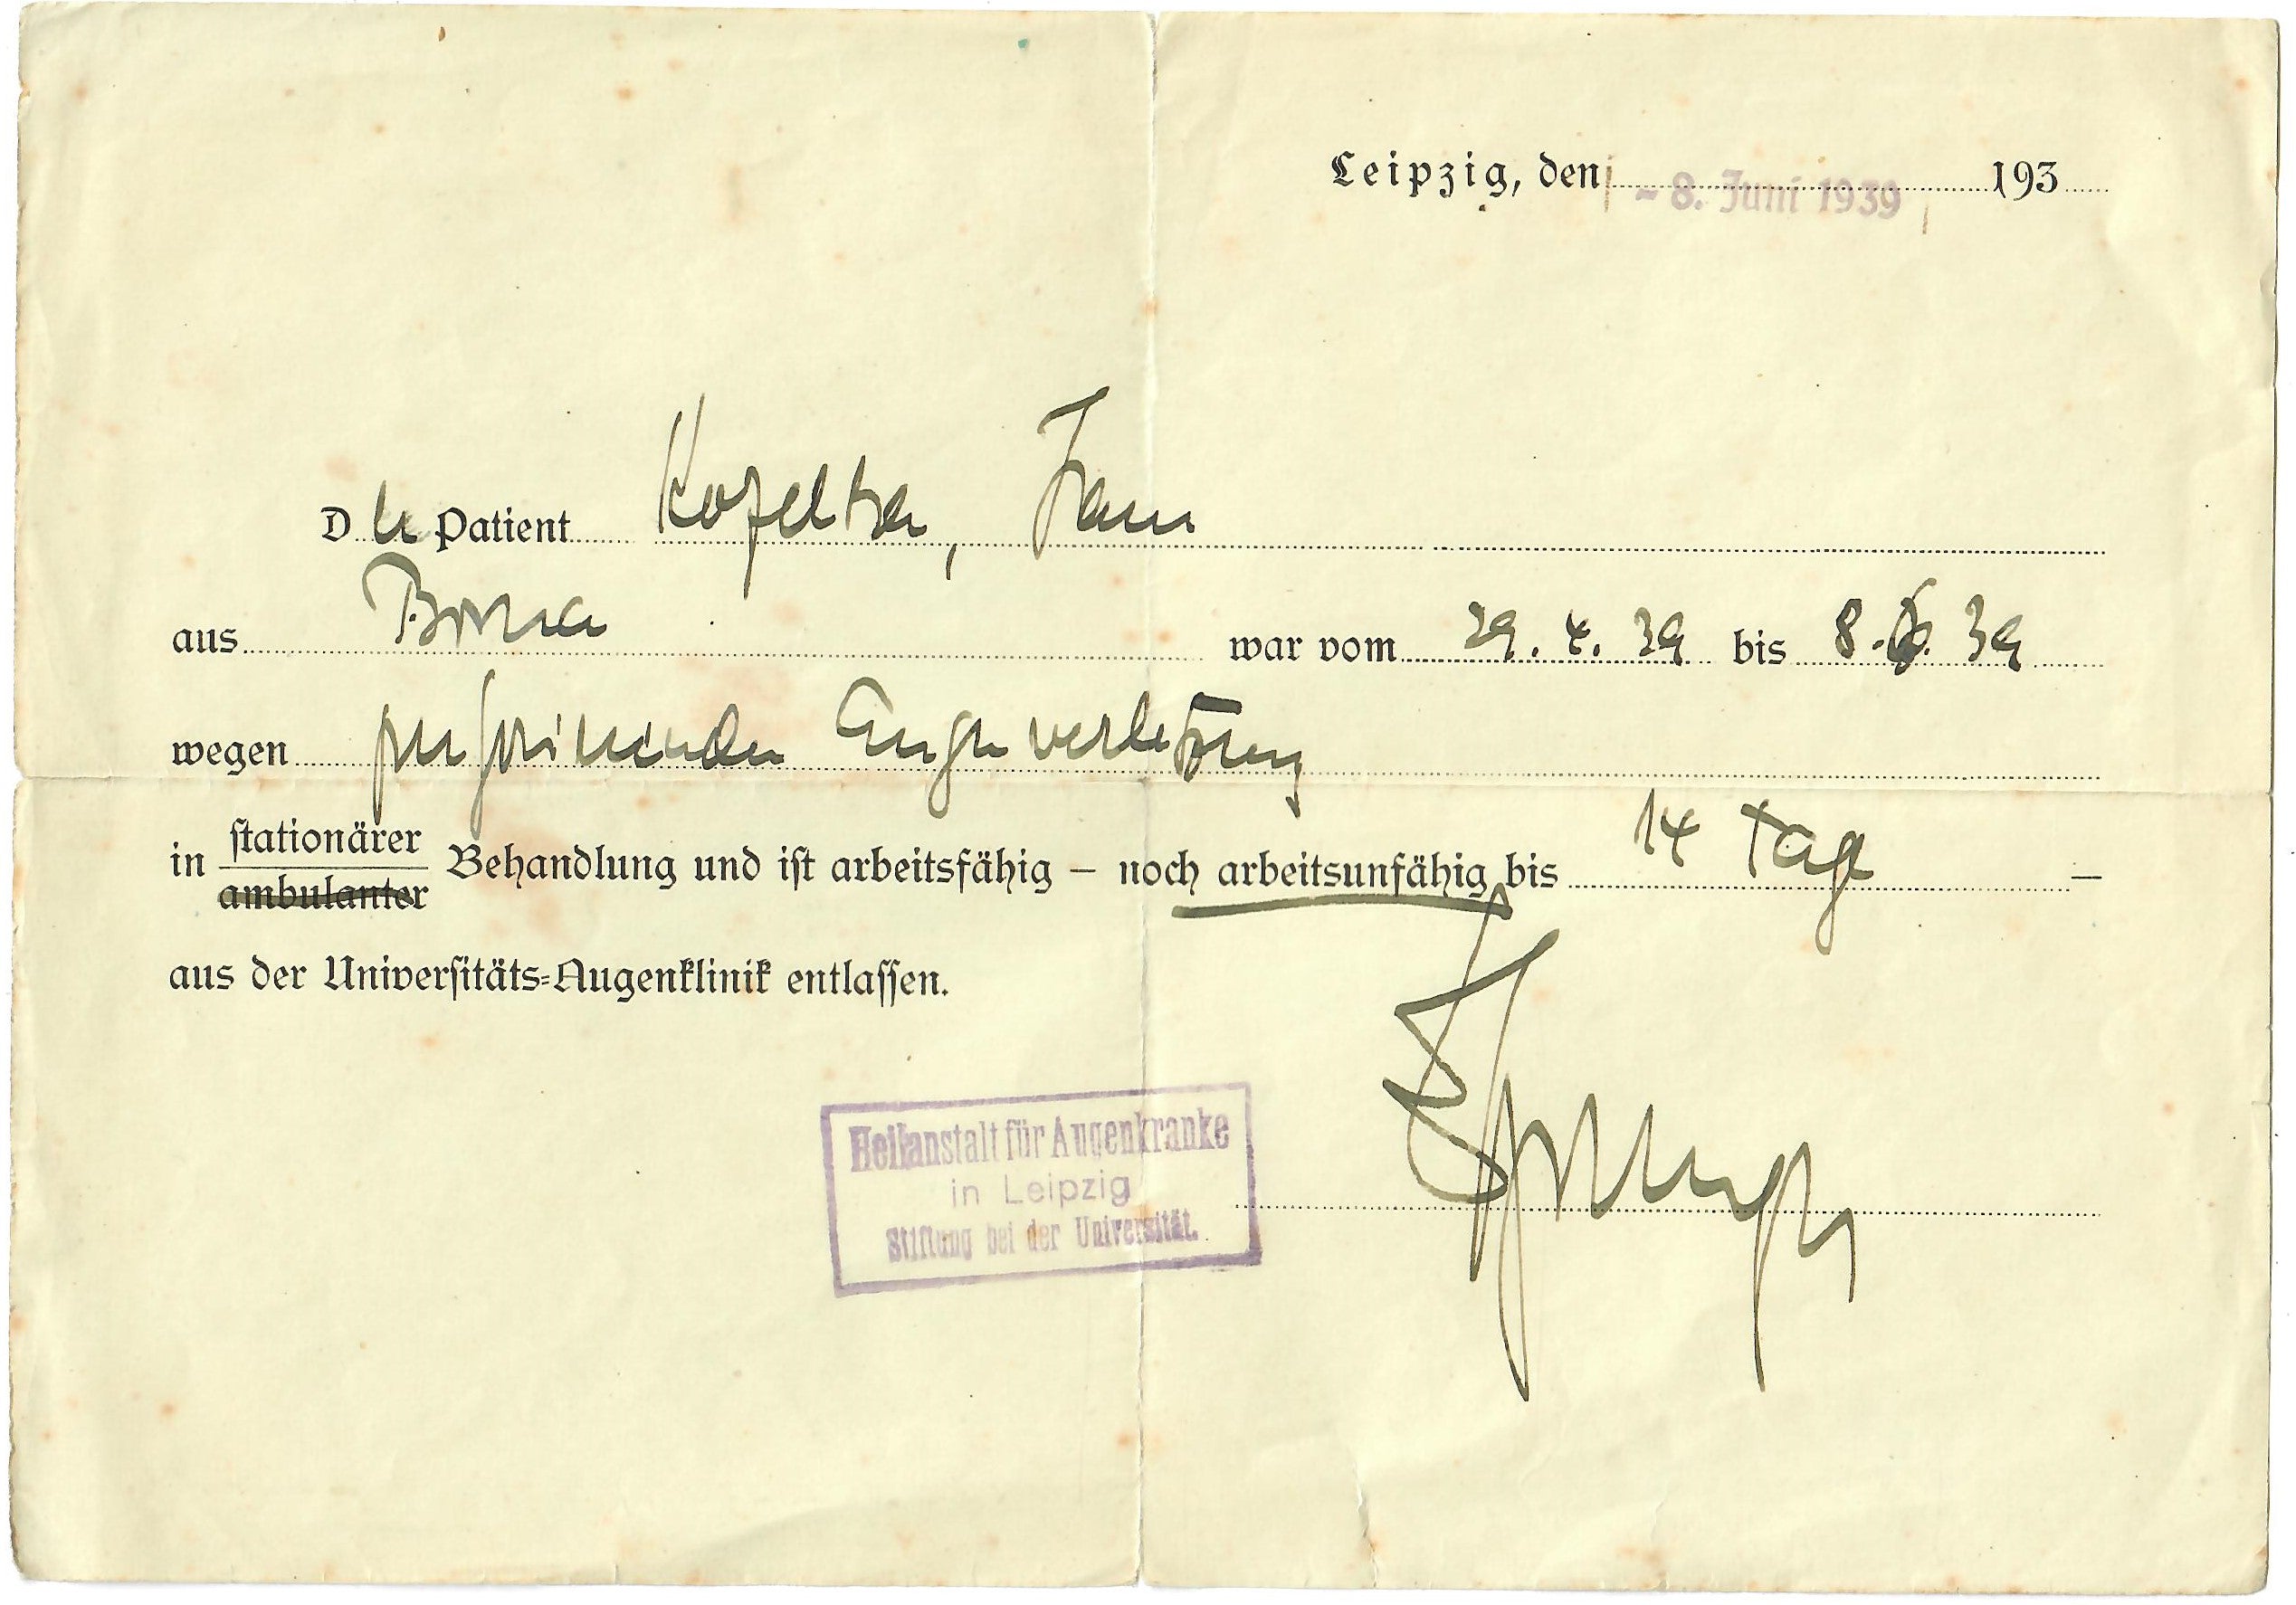 Leipzig, den - 8. Juni 1939 193
Der Patient Kozelka, Jan
aus Borna war vom 29. 4. 39 bis 8. 6. 39
wegen perforierender Augenverletzung
in stationärer Behandlung und ist arbeitsfähig – noch arbeitsunfähig bis 14 Tage –
ambulanter
aus der Universitäts-Augenklinik entlassen.
Heilanstalt für Augenkranke
in Leipzig
Stiftung bei der Universität.